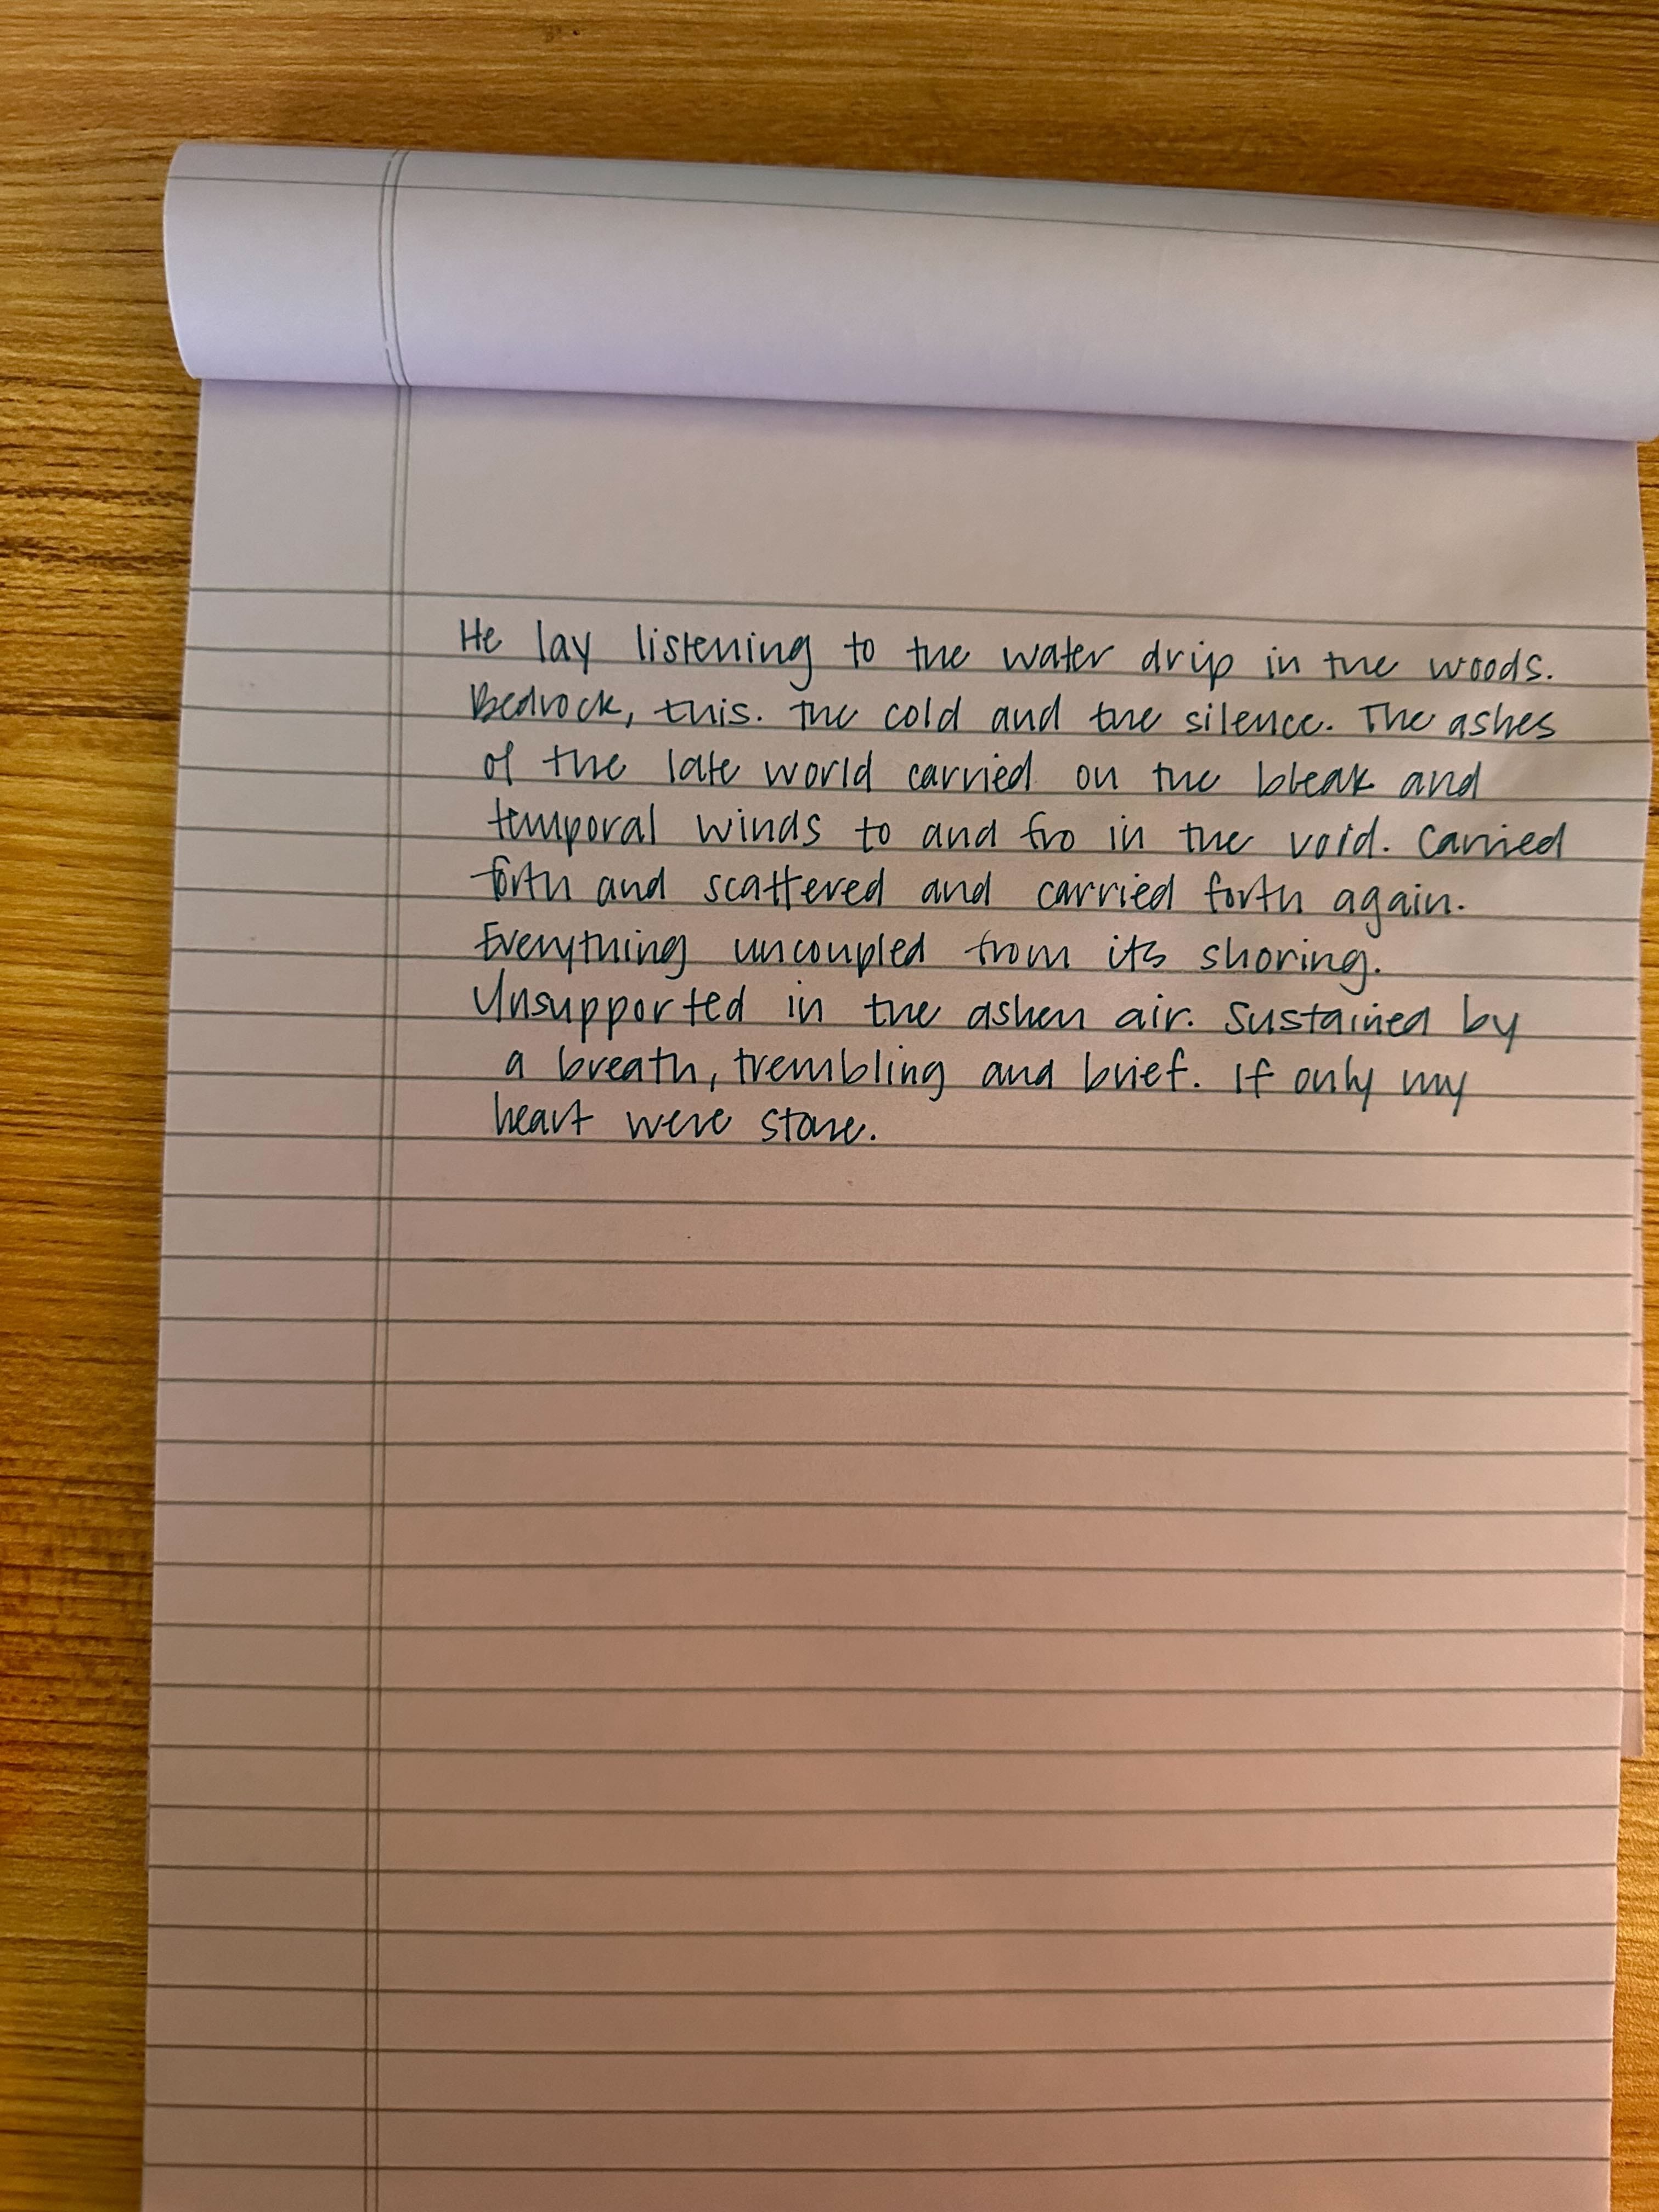 He lay listening to the water drip in the woods.
Bedrock, this. The cold and the silence. The ashes
of the late world carried on the bleak and
temporal winds to and fro in the void. Carried
forth and scattered and carried forth again.
Everything uncoupled from its shoring.
Unsupported in the ashen air. Sustained by
a breath, trembling and brief. If only my
heart were stone.